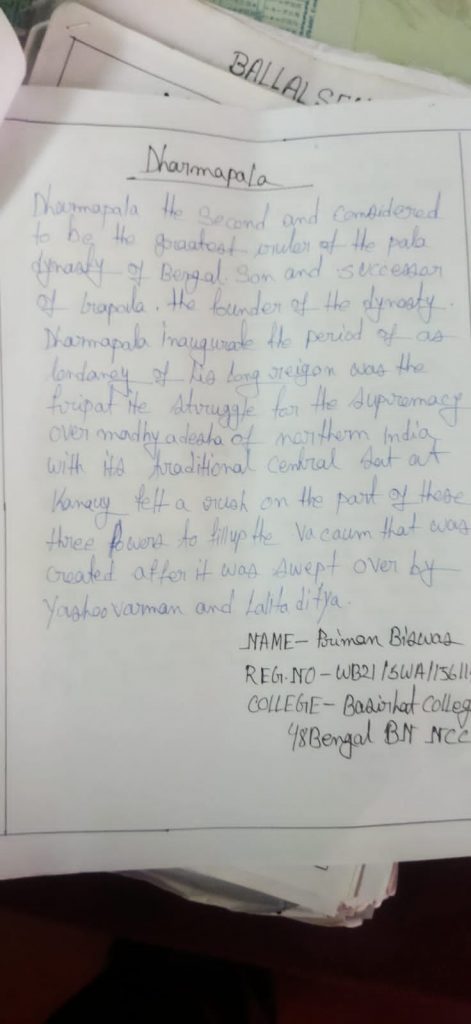 BALLALSEN
Dharmapala
Dharmapala the Second and Considered
to be the greatest ruler of the pala
dynasty of Bengal. Son and successor
of . the founder of the dynasty.
Dharmapala inaugurate the period of as
of his long reigon was the
He struggle for the supremacy
over madhyadesha of northern India,
with its traditional central Sat at
Kanauj fell a rush on the part of these
three Powers to fillup the Vacaum that was
created after it was swept over by
Yashovarman and Lalitaditya.
NAME- Biswas
REG.NO-WB21/SWA/15611
COLLEGE- Basirhat Colleg
48Bengal BN NCC